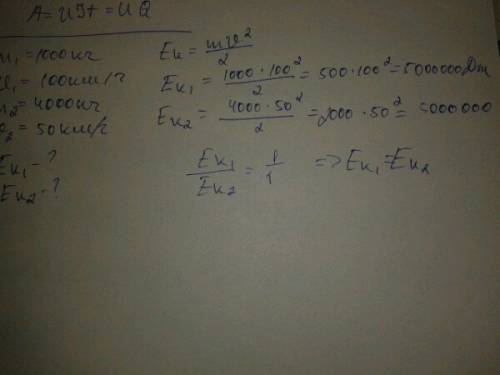 A = UIt = UQ
m₁ = 1000кг
v₁ = 100км/ч
m₂ = 4000кг
v₂ = 50км/ч
Eк₁ - ?
Eк₂ - ?
Eк = mv²/2
Eк₁ = 1000·100²/2 = 500·100² = 5000000Дж
Eк₂ = 4000·50²/2 = 2000·50² = 5000000
Eк₁/Eк₂ = 1/1 => Eк₁ = Eк₂